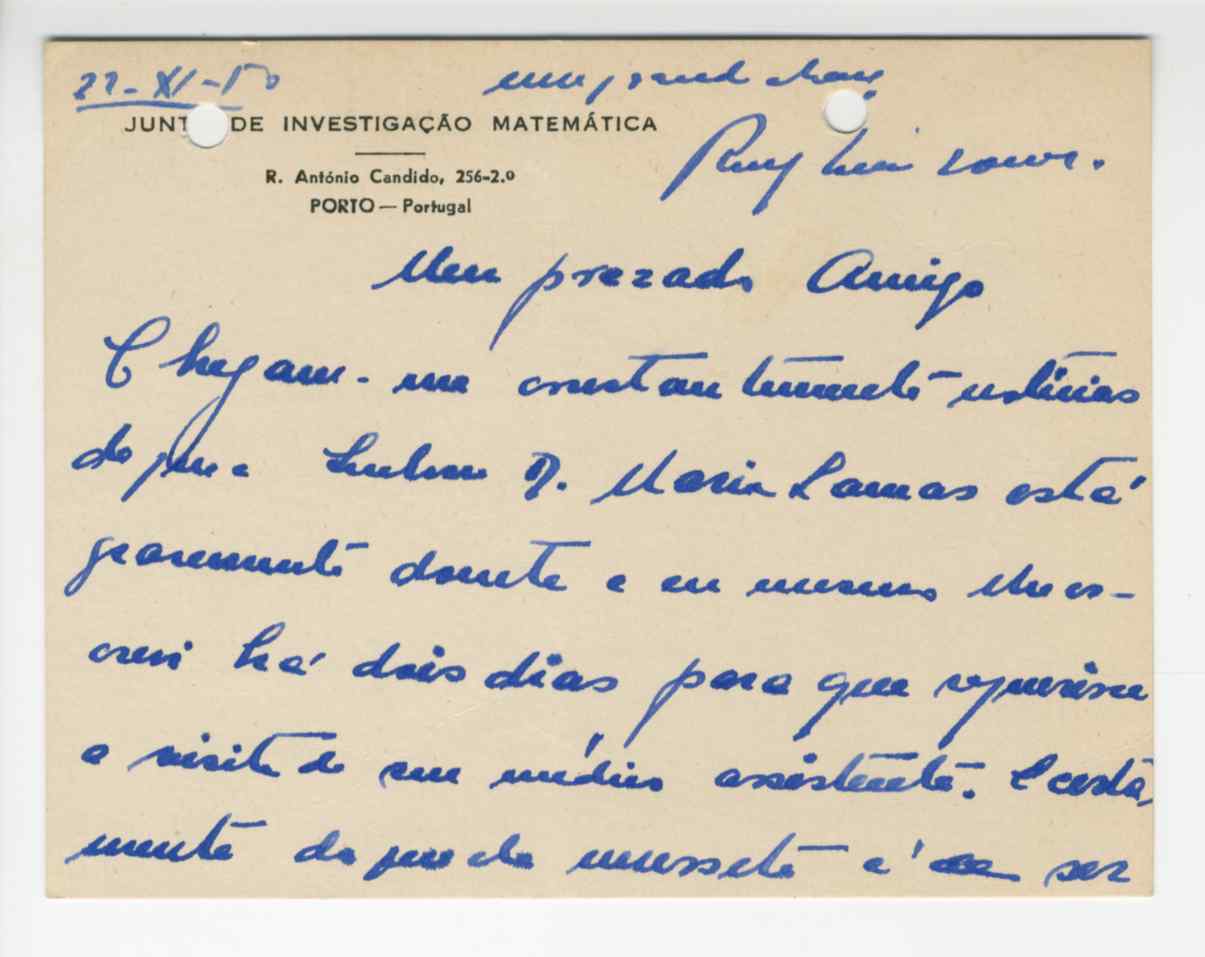 22-XI-50
um grande abraço
Ruy Luís Gomes.
JUNT DE INVESTIGAÇÃO MATEMÁTICA
R. António Candido, 256-2.º
PORTO — Portugal
Meu prezado Amigo
Chegam-me constantemente notícias
de que a Senhora D. Maria Lamas está
gravemente doente e eu mesmo lhe es-
crevi há dois dias para que requeresse
a visita do seu médico assistente. Certa,
mente do que ela necessita é de ser